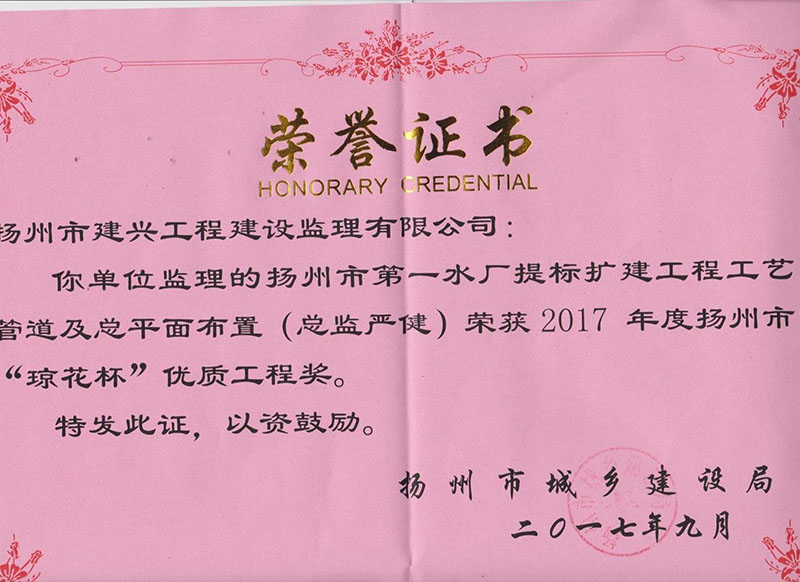 荣誉证书
HONORARY CREDENTIAL
扬州市建兴工程建设监理有限公司：
你单位监理的扬州市第一水厂提标扩建工程工艺
管道及总平面布置（总监严健）荣获 2017 年度扬州市
“琼花杯”优质工程奖。
特发此证，以资鼓励。
扬州市城乡建设局
二〇一七年九月